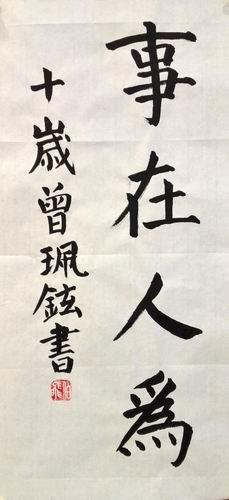 事在人為
十歲曾珮鉉書